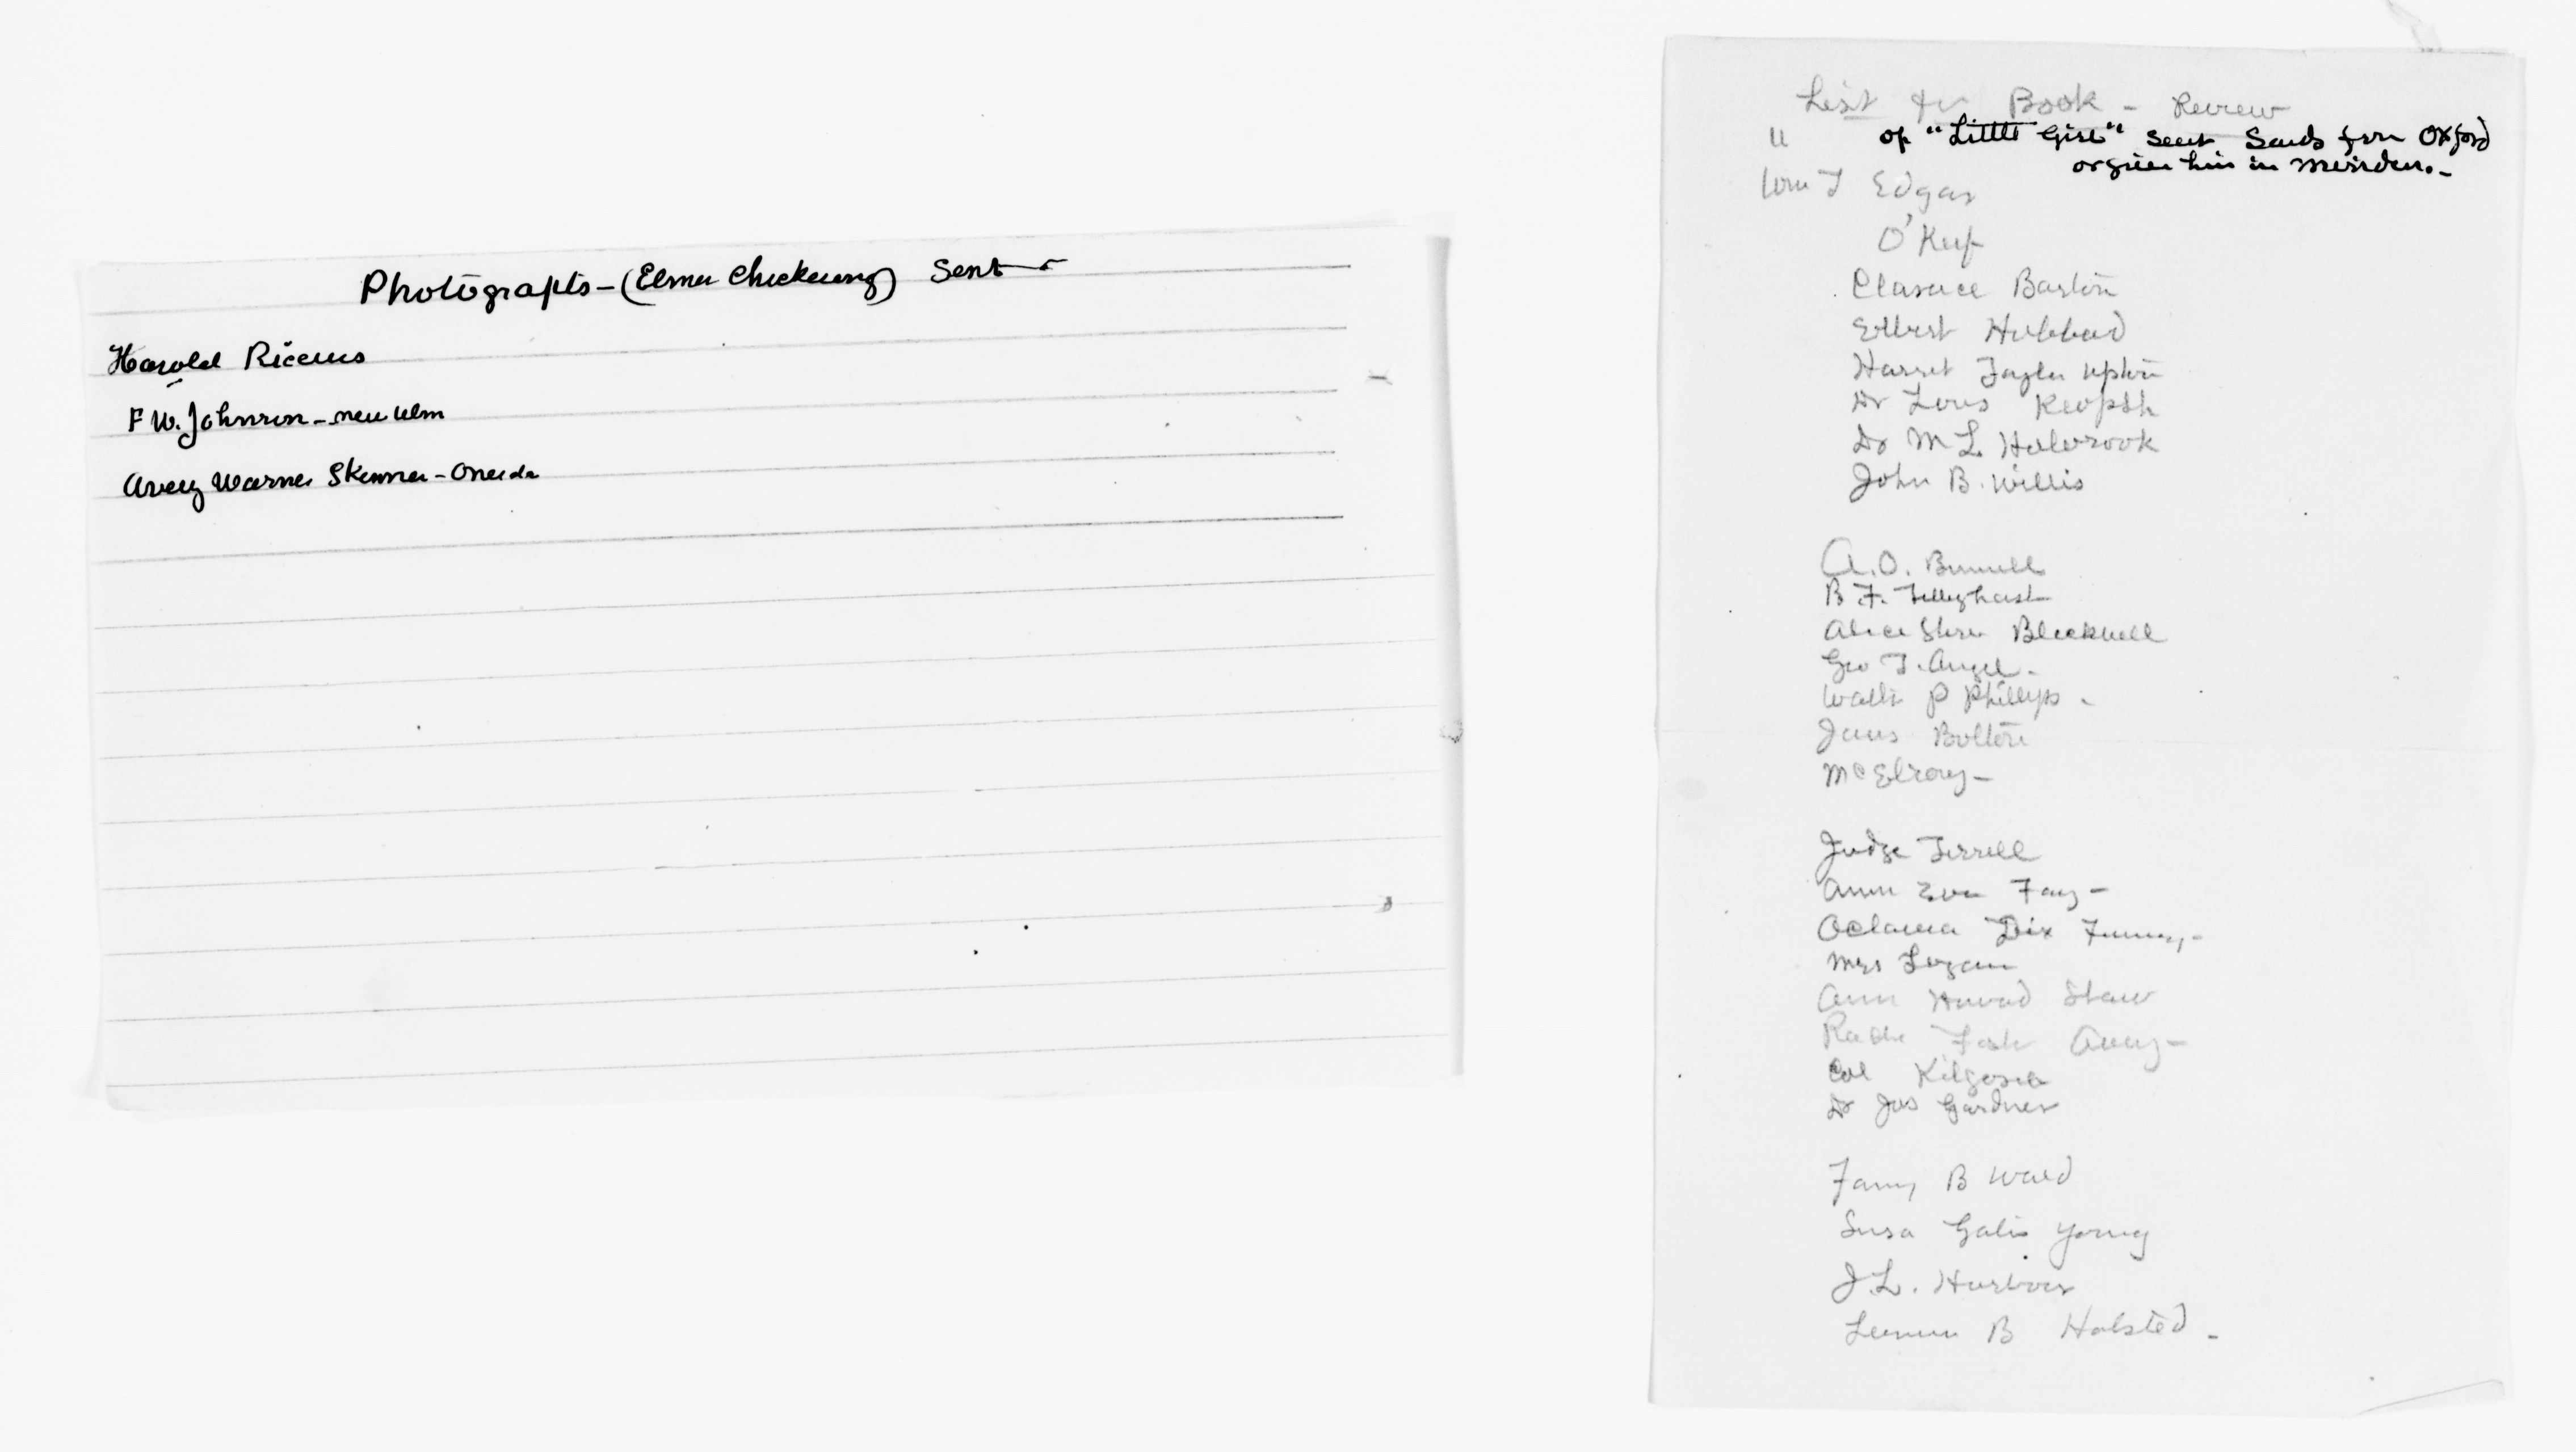 Photographs - (Elmer Chickering) Sent -
Harold
F W. Johnson - New Ulm
Avery Warner Skinner - Oneida
List for Book - Review
" of "Little Girl" sent Sands from Oxford
or given him in Meriden. -
Wm J Edgar
O'Keef
Clarence Barton
Elbert Hubbard
Harriet Taylor Upton
Dr Louis Klopsh
Dr M L. Holbrook
John B. Willis
A. O. Bunnell
B F. Tillinghast
Alice Stone Blackwell
Geo T. Angel -
Walter P Phillips -
James Bolton
McElroy -
Judge Terrell
Anna Eva Fay -
Octavia Dix
Mrs Logan
Ann Howard Shaw
Rachel Foster Avery -
Col Kilgore
Dr Jos Gardner
Fanny B Ward
Susa Gates Young
J. L. Harbour
B Halsted -